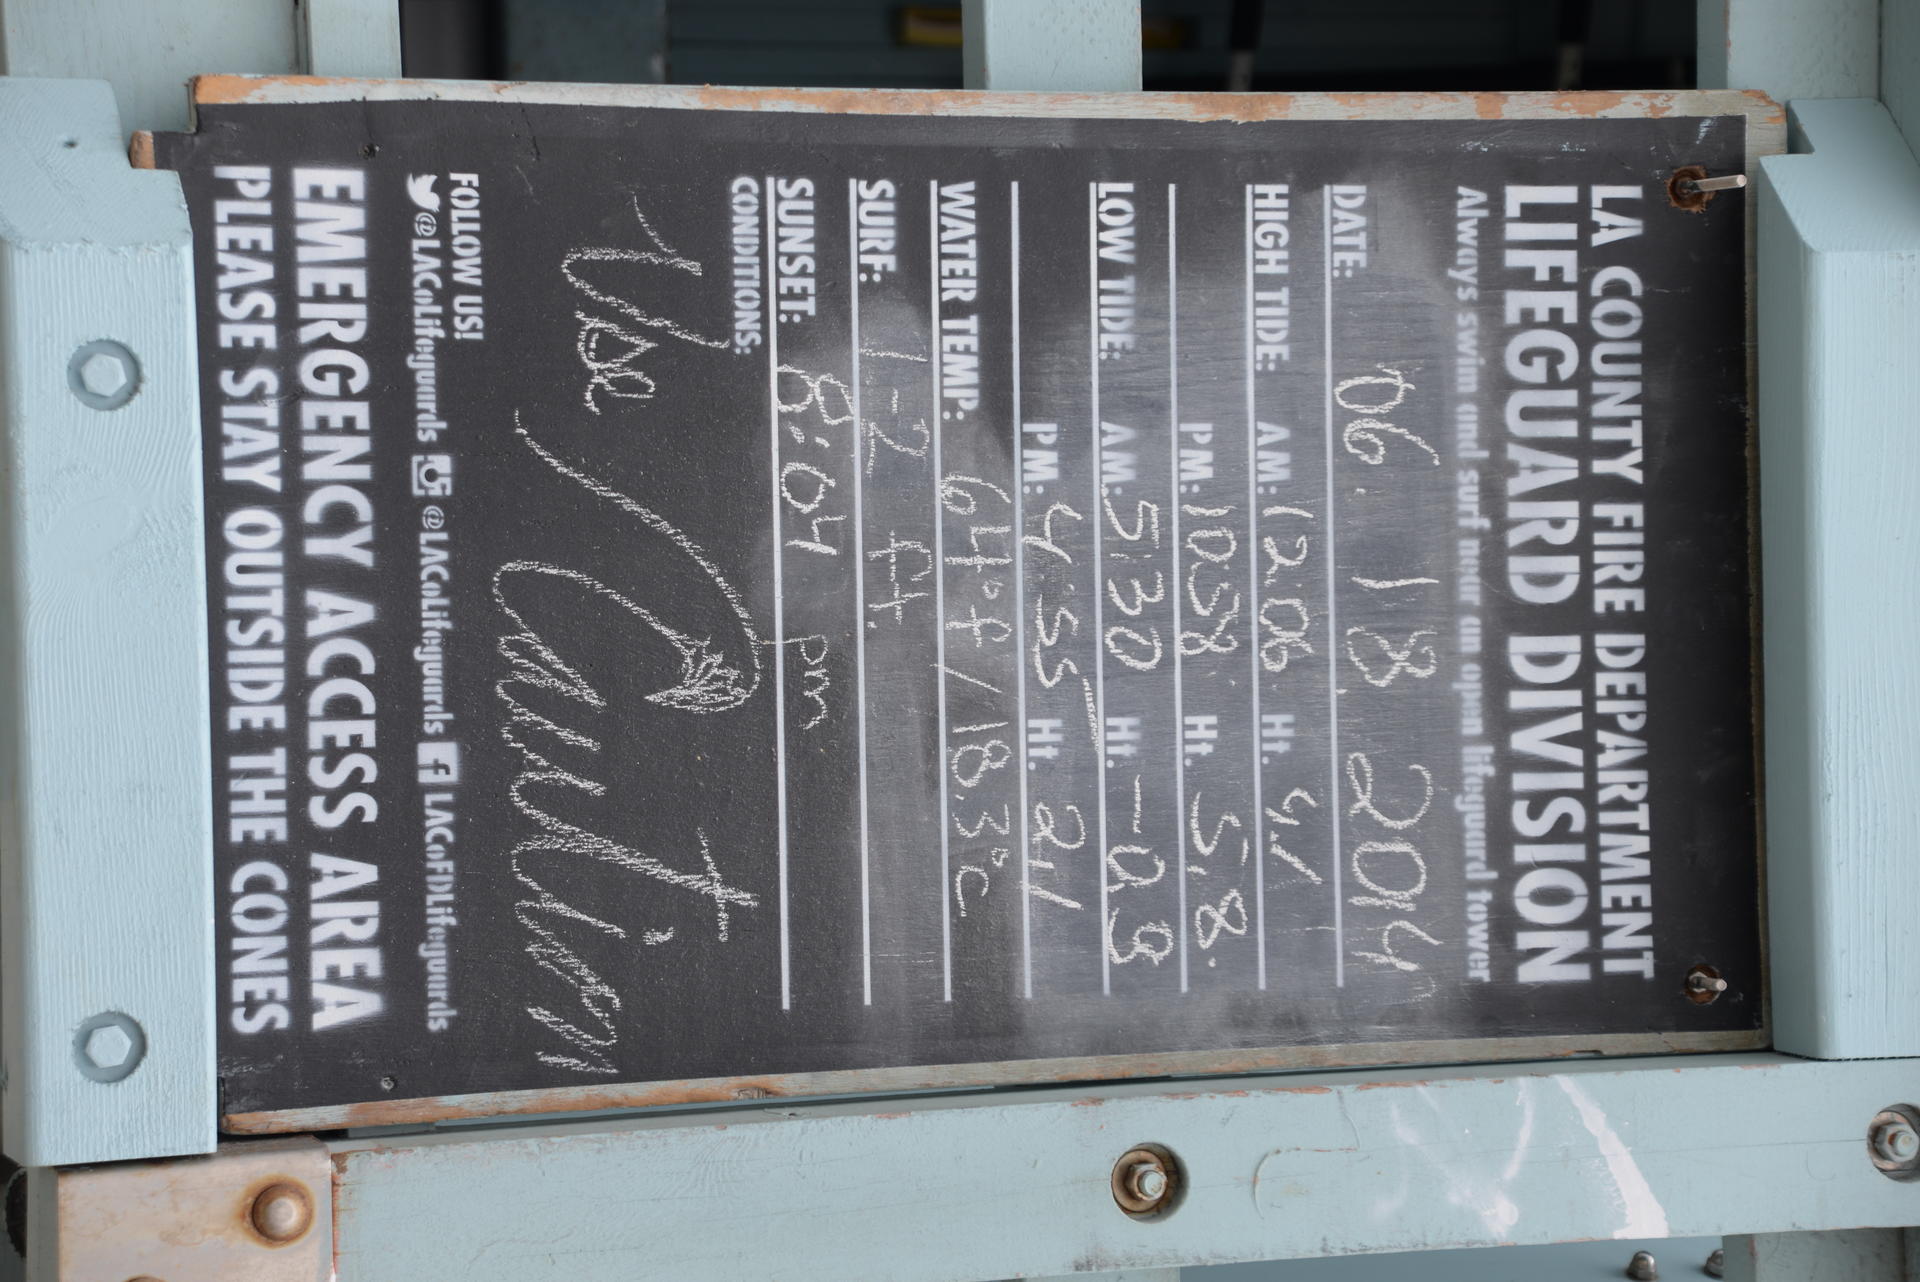 LA COUNTY FIRE DEPARTMENT
LIFEGUARD DIVISION
Always swim and surf near an open lifeguard tower
DATE: 06. 18. 2014
HIGH TIDE: AM: 12:06 Ht. 4.1
PM: 10:38 Ht. 5.8
LOW TIDE: AM: 5:30 Ht. -0.9
PM: 4:55 Ht. 2.1
WATER TEMP: 64°f / 18.3°c
SURF: 1-2 ft.
SUNSET: 8:04 pm
CONDITIONS:
Use Caution
FOLLOW US!
@LACoLifeguards @LACoLifeguards LACoFDLifeguards
EMERGENCY ACCESS AREA
PLEASE STAY OUTSIDE THE CONES